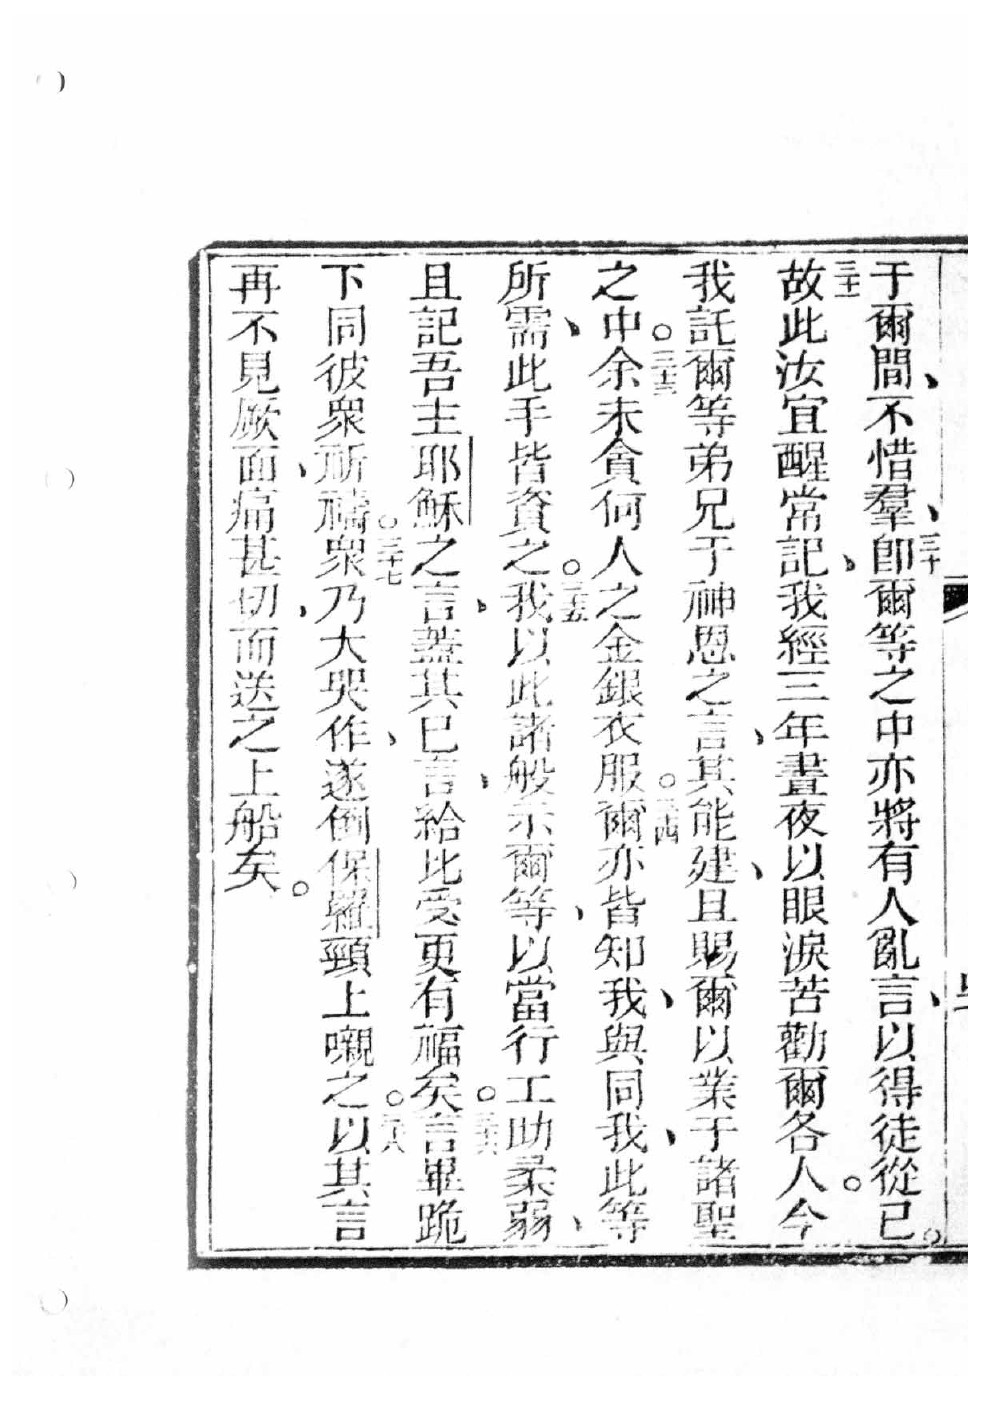 于爾間、不惜羣、三十卽爾等之中亦將有人亂言、以得徒從已。
三十一故此汝宜醒常記、我經三年晝夜以眼淚苦勸爾各人。今
我託爾等弟兄于神恩之言、其能建、且賜爾以業于諸聖
之中。三十三余未貪何人之金銀衣服。三十四爾亦皆知我、與同我、此等
所需、此手皆資之。三十五我以此諸般示爾等、以當行工助柔弱、
且記吾主耶穌之言、蓋其已言、給比受更有福矣。三十六言畢跪
下同彼衆祈禱。三十七衆乃大哭作、遂倒保羅頸上嚫之。三十八以其言
再不見厥面、痛甚切、而送之上船矣。